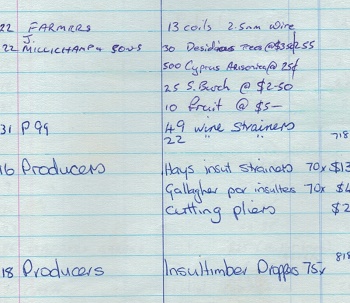 22 FARMERS 13 coils 2.5mm wire
22 J. MILLICHAMP & SONS 30 Desiduous Trees @ $3
500 Cyprus Arisonica @ 25¢
25 S. Birch @ $2-50
10 fruit @ $5-
31 P 99 49 wine strainers
22 " " 718
16 Producers Hays insul strainers 70x $13
Gallagher por insultes 70x $4
Cutting pliers $2
818
18 Producers Insultimber Droppers 75x